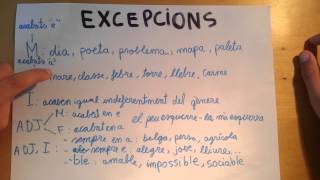 EXCEPCIONS
acabats "a"
M: dia, poeta, problema, mapa, paleta
acabats "e"
mare, classe, febre, torre, llebre, carme
I: acaben igual independentment del gènere
ADJ M: acabat en e el peu esquerre - la mà esquerra
F: acabat en a
ADJ, I: - sempre en a: belga, persa, agrícola
- sempre e: alegre, jove, lliure...
- ble: amable, impossible, sociable